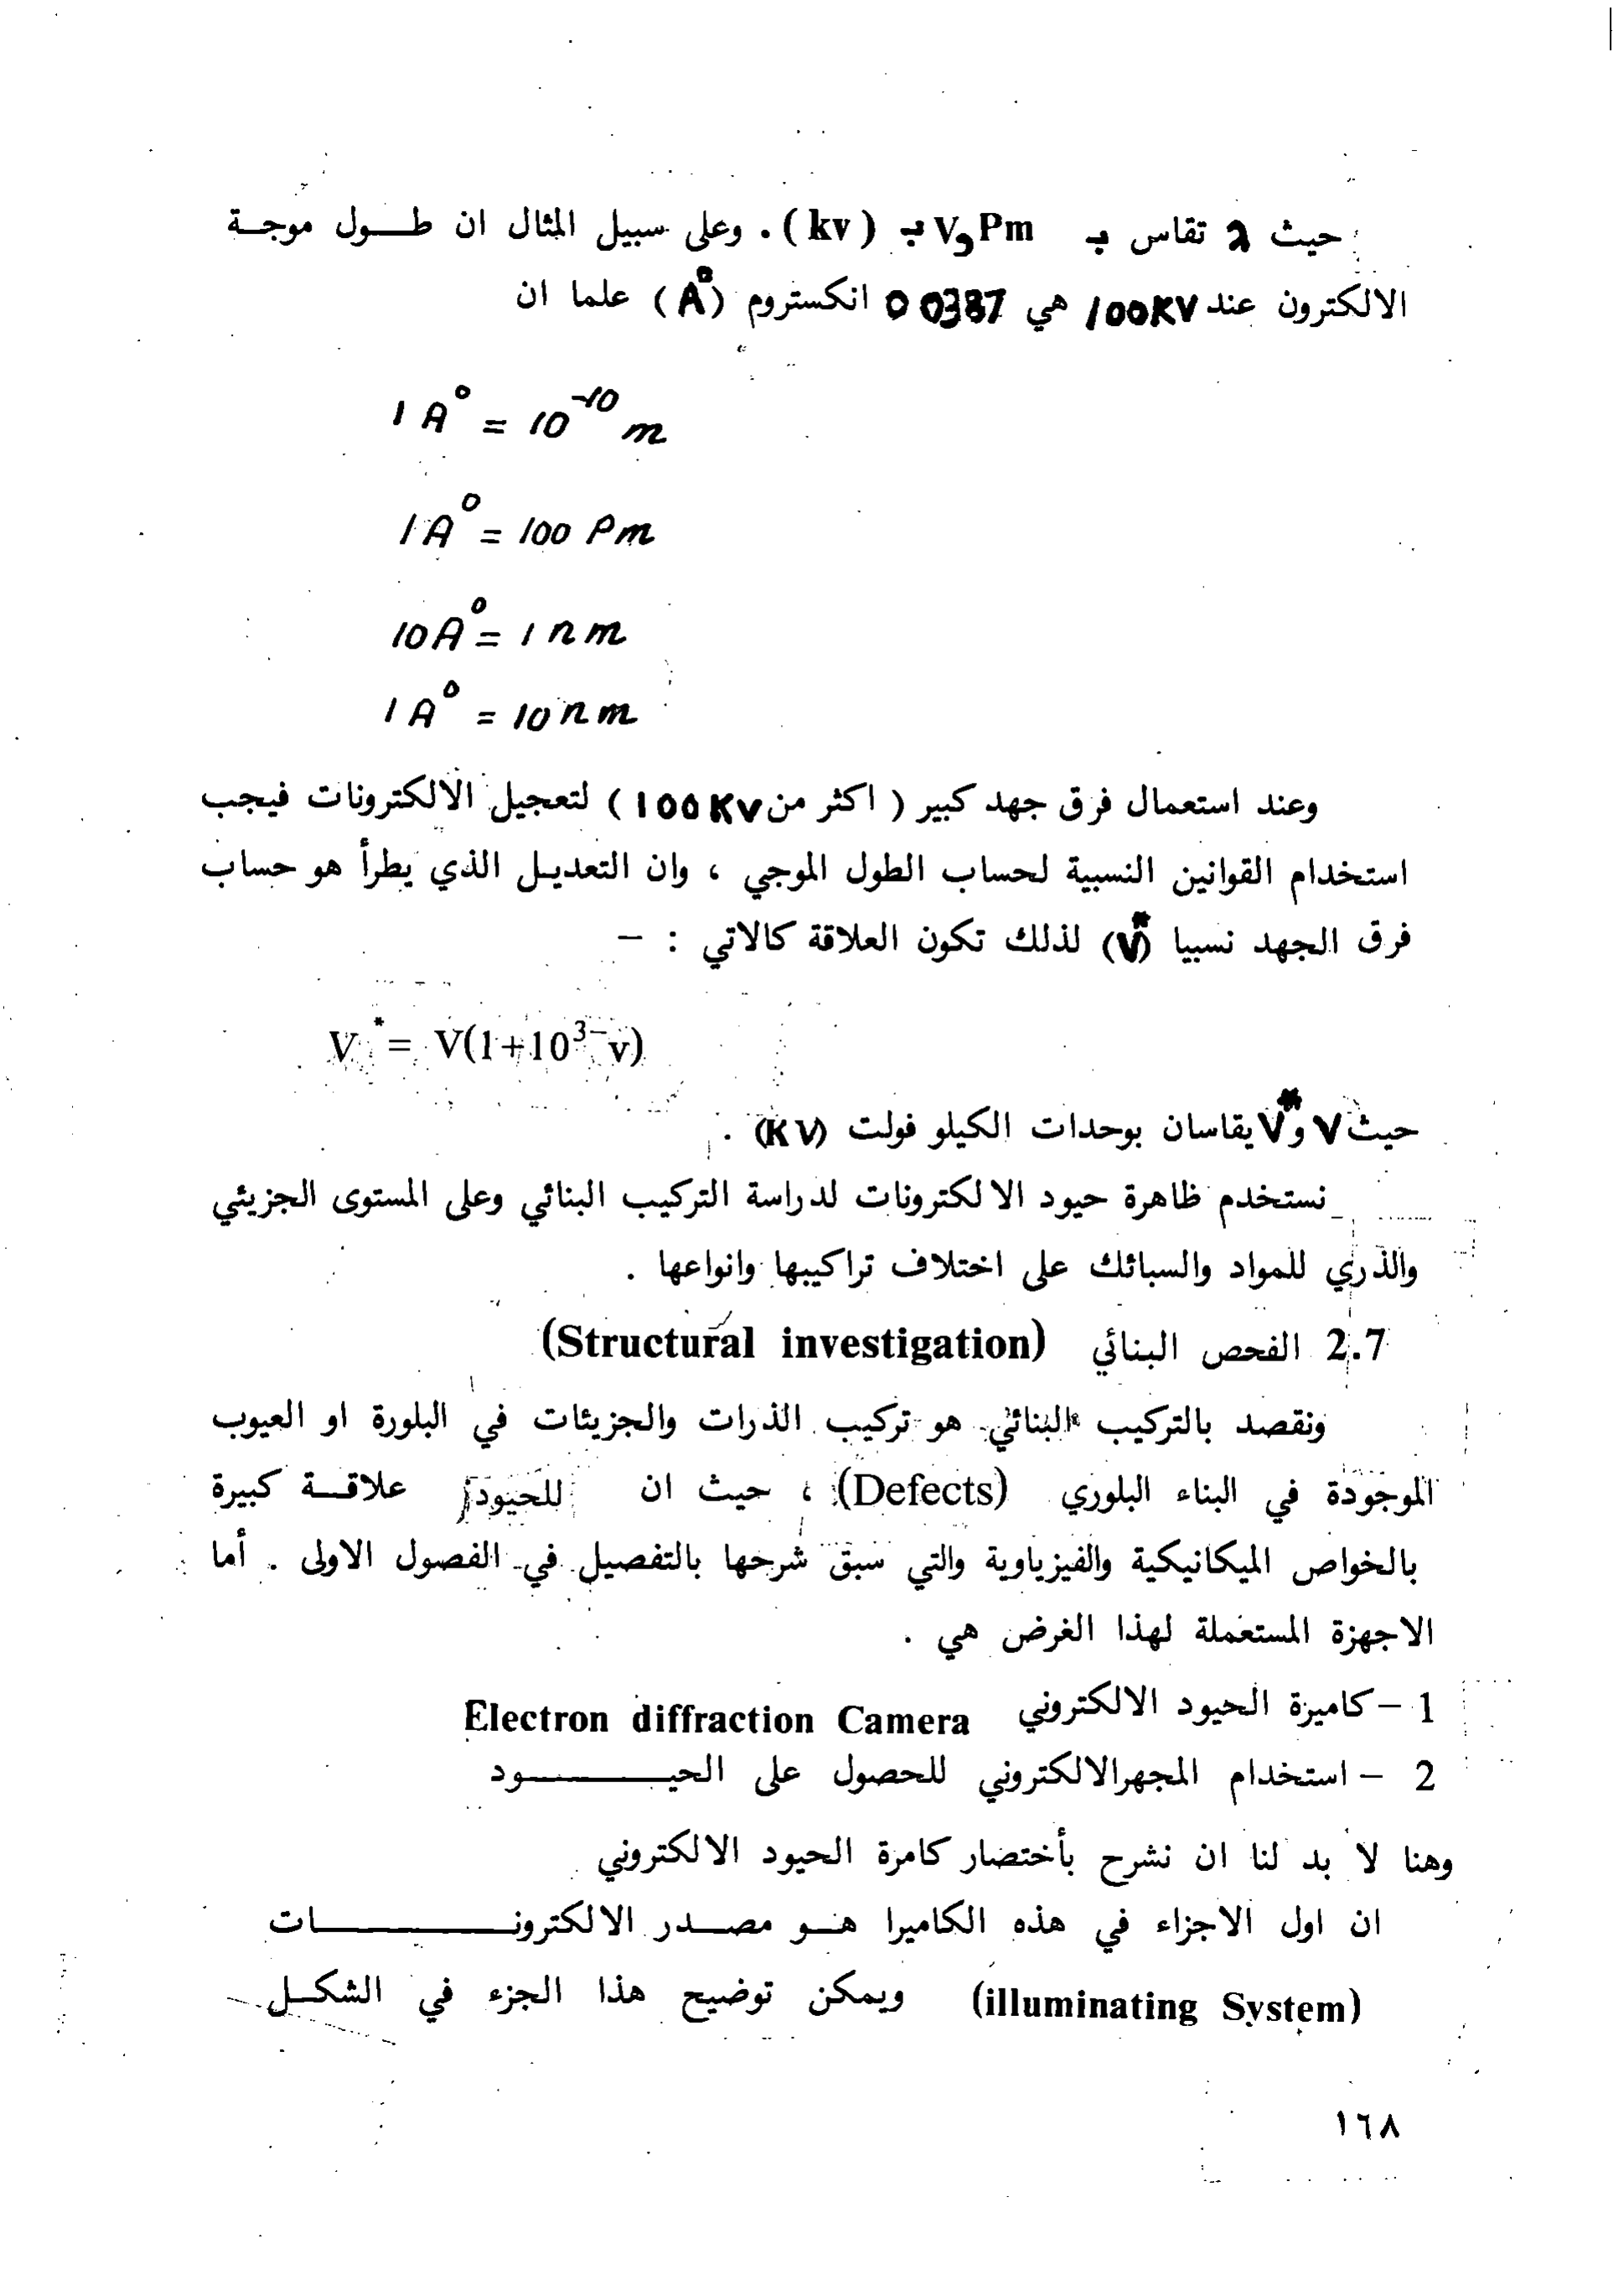 حيث λ تقاس بـ Pm و V بـ ( kv ) . وعلى سبيل المثال ان طـــول موجـــة
الالكترون عند 100KV هي 0 0387 انكستروم (A°) علما ان
1 A° = 10⁻¹⁰ m
1 A° = 100 Pm
10 A° = 1 nm
1 A° = 10 nm
وعند استعمال فرق جهد كبير ( اكثر من 100KV ) لتعجيل الالكترونات فيجب
استخدام القوانين النسبية لحساب الطول الموجي ، وان التعديـل الذي يطرأ هو حساب
فرق الجهد نسبيا (V*) لذلك تكون العلاقة كالاتي : –
V* = V(1+10³⁻v)
حيث V و V* يقاسان بوحدات الكيلو فولت (KV) .
نستخدم ظاهرة حيود الالكترونات لدراسة التركيب البنائي وعلى المستوى الجزيئي
والذري للمواد والسبائك على اختلاف تراكيبها وانواعها .
2.7 الفحص البنائي (Structural investigation)
ونقصد بالتركيب البنائي هو تركيب الذرات والجزيئات في البلورة او العيوب
الموجودة في البناء البلوري (Defects) ، حيث ان للحيود علاقـــة كبيرة
بالخواص الميكانيكية والفيزياوية والتي سبق شرحها بالتفصيل في الفصول الاولى . أما
الاجهزة المستعملة لهذا الغرض هي .
1 – كاميرة الحيود الالكتروني Electron diffraction Camera
2 – استخدام المجهرالالكتروني للحصول على الحيـــــــود
وهنا لا بد لنا ان نشرح بأختصار كامرة الحيود الالكتروني
ان اول الاجزاء في هذه الكاميرا هـــو مصـــدر الالكترونـــــــــات
(illuminating System) ويمكن توضيح هذا الجزء في الشكـــل
١٦٨